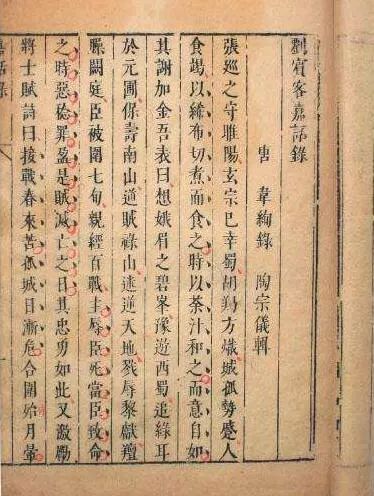 劉賓客嘉話錄
唐 韋絢錄 陶宗儀輯
張巡之守睢陽玄宗已幸蜀胡羯方熾城孤勢蹙人
食竭以絺布切煮而食之時以茶汁和之而意自如
其謝加金吾表曰想娥眉之碧峯豫遊西蜀追綠耳
於元圃保壽南山逆賊祿山迷逆天地戮辱黎獻羶
臊闕庭臣被圍七旬親經百戰主辱臣死當臣致命
之時惡稔罪盈是賊滅亡之日其忠勇如此又激勵
將士賦詩曰接戰春來苦孤城日漸危合圍始月暈
嘉話錄